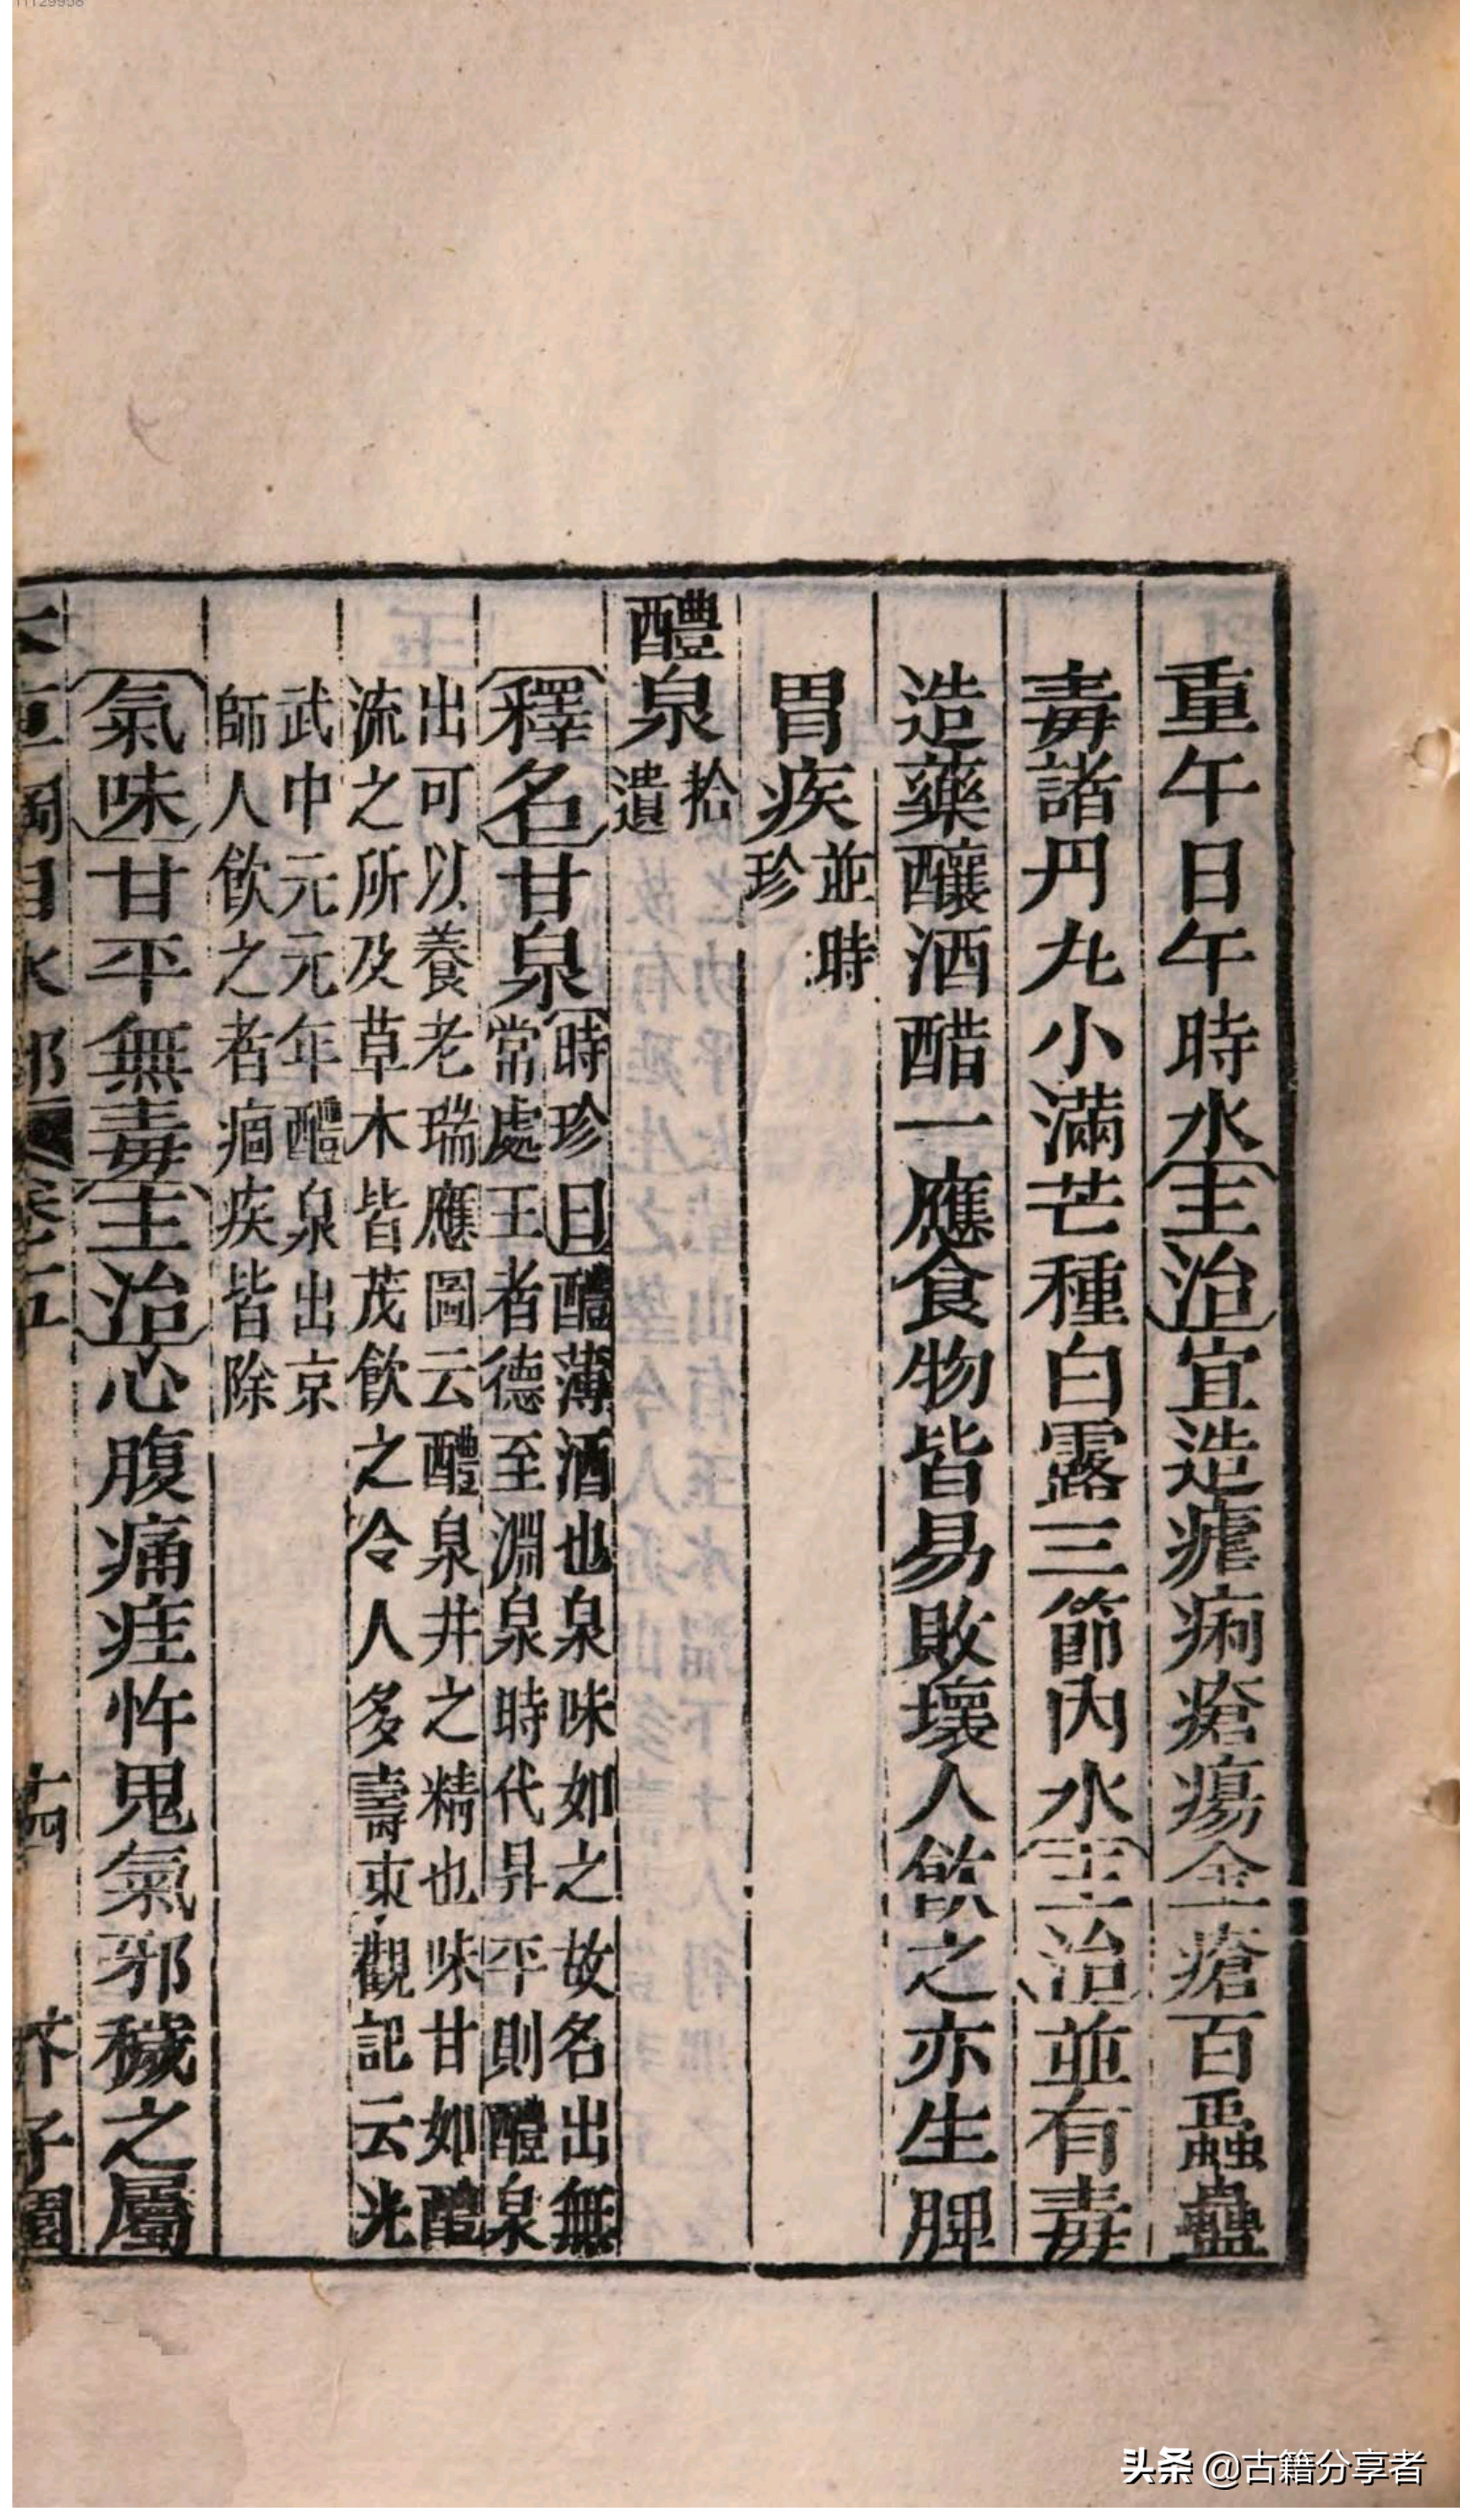 重午日午時水主治宜造瘧痢瘡瘍金瘡百蟲蠱
毒諸丹丸小滿芒種白露三節內水主治並有毒
造藥釀酒醋一應食物皆易敗壞人飲之亦生脾
胃疾並時
珍
醴泉拾
遺
釋名甘泉時珍曰醴薄酒也泉味如之故名出無
常處王者德至淵泉時代昇平則醴泉
出可以養老瑞應圖云醴泉井之精也味甘如醴
流之所及草木皆茂飲之令人多壽東觀記云光
武中元元年醴泉出京
師人飲之者痼疾皆除
氣味甘平無毒主治心腹痛疰忤鬼氣邪穢之屬
本草綱目水部 卷五 十四 芥子園
11129958
头条 @古籍分享者